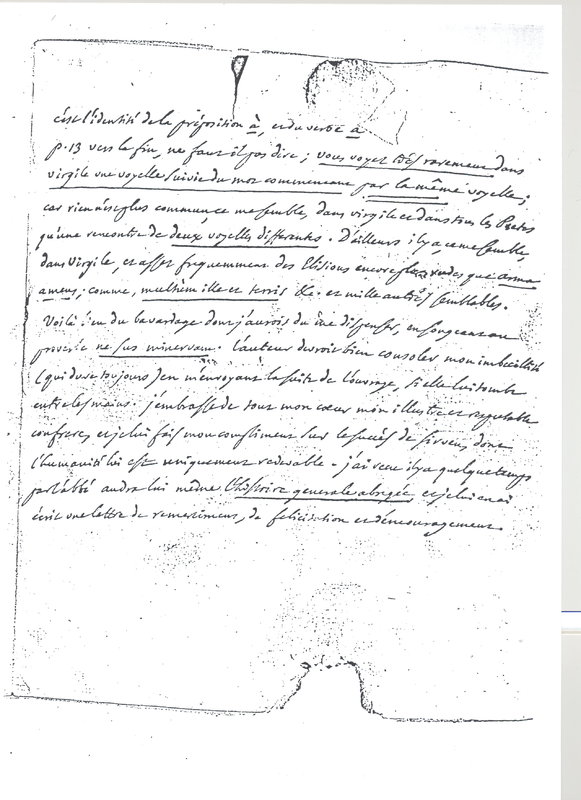 c'est l'identité de la préposition à, et du verbe à
p. 13 vers la fin, ne faut il pas dire; vous voyez très rarement dans
virgile une voyelle suivie du mot commencant par la même voyelle;
car rien n'est plus commun, ce me semble, dans virgile et dans tous les Poetes
qu'une rencontre de deux voyelles differentes. D'ailleurs il y a, ce me semble,
dans Virgile, et assez frequemment des Elisions encore plus rudes que arma
amens; comme, multum ille et terris &c. et mille autres semblables.
Voilà bien du bavardage dont j'aurois du me dispenser, en songeant au
proverbe ne sus minervam. l'auteur devroit bien consoler mon imbecillité
(qui dure toujours) en m'envoyant la suite de l'ouvrage, si elle lui tombe
entre les mains. j'embrasse de tout mon cœur mon illustre et respectable
confrere, et je lui fais mon compliment sur le succès de sirven, dont
l'humanité lui est uniquement redevable - j'ai reçu il y a quelque temps
par l'abbé audra lui même l'histoire generale abregée, et je lui en ai
écrit une lettre de remerciment, de felicitation et d'encouragement.